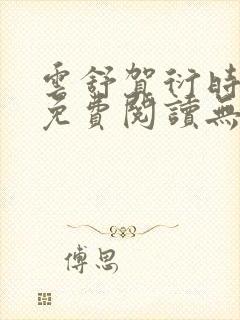 雲舒賀衍時
免費閱讀無
傅思